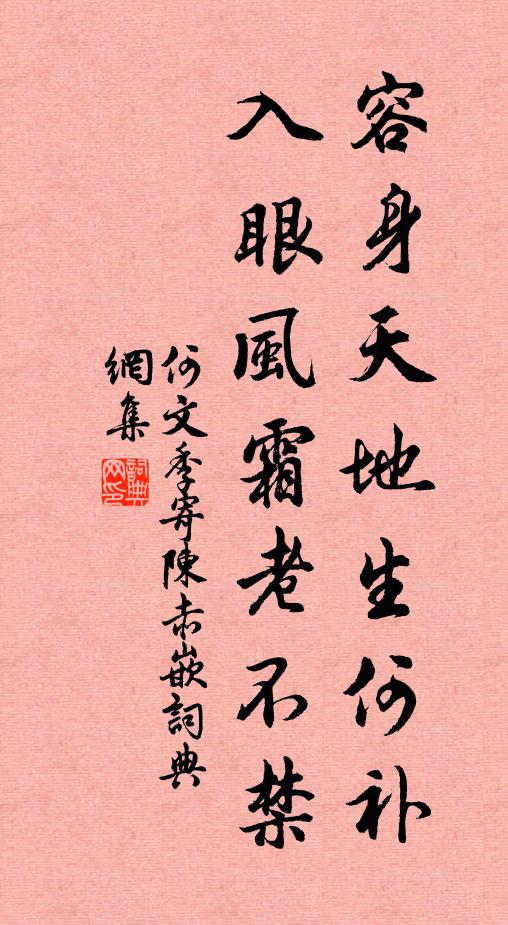 容身天地生何补
入眼風霜老不禁
何文季寄陳赤嵌詞典
網集
詞典網印